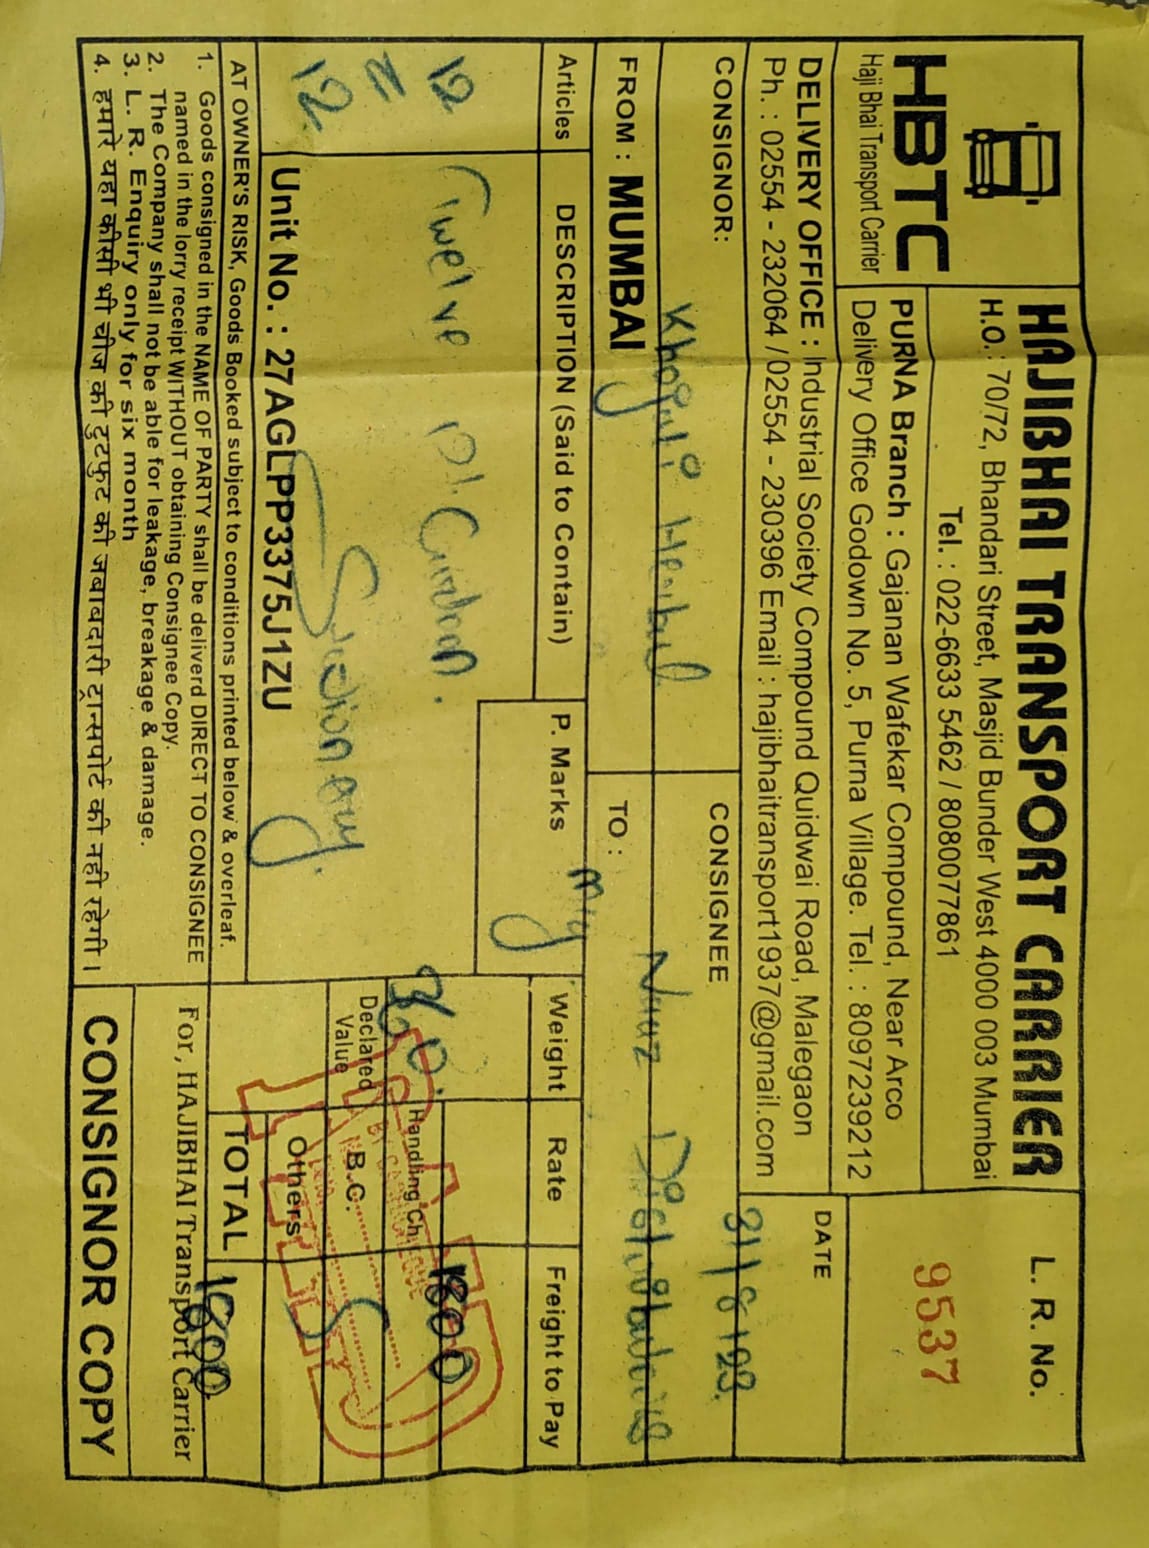 HBTC
Haji Bhai Transport Carrier
HAJIBHAI TRANSPORT CARRIER
H.O.: 70/72, Bhandari Street, Masjid Bunder West 4000 003 Mumbai
Tel. : 022-6633 5462 / 8080077861
PURNA Branch : Gajanan Wafekar Compound, Near Arco
Delivery Office Godown No. 5, Purna Village. Tel. : 8097239212
L. R. No.
9537
DELIVERY OFFICE : Industrial Society Compound Quidwai Road, Malegaon
Ph. : 02554 - 232064 / 02554 - 230396 Email : hajibhaitransport1937@gmail.com
DATE
31/8/23
CONSIGNOR:
Khojati Herbal
CONSIGNEE
Niaz Distributors
FROM : MUMBAI
TO :
Mlg
Articles
DESCRIPTION (Said to Contain)
P. Marks
Weight
Rate
Freight to Pay
12
Twelve
1800
Handling Ch.
=
12
Declared
Value
B.C.
Others
Unit No. : 27AGLPP3375J1ZU
TOTAL
1800
AT OWNER'S RISK, Goods Booked subject to conditions printed below & overleaf.
1. Goods consigned in the NAME OF PARTY shall be deliverd DIRECT TO CONSIGNEE
named in the lorry receipt WITHOUT obtaining Consignee Copy.
2. The Company shall not be able for leakage, breakage & damage.
3. L. R. Enquiry only for six month
4. हमारे यहा कीसी भी चीज की टुटफुट की जबाबदारी ट्रान्सपोर्ट की नही रहेगी।
For, HAJIBHAI Transport Carrier
CONSIGNOR COPY